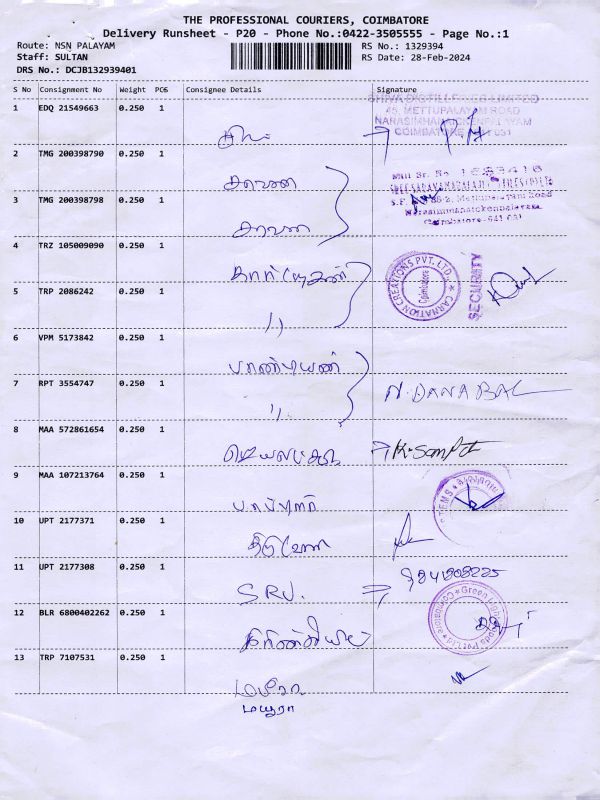 THE PROFESSIONAL COURIERS, COIMBATORE
Delivery Runsheet - P20 - Phone No.:0422-3505555 - Page No.:1
Route: NSN PALAYAM
RS No.: 1329394
Staff: SULTAN
RS Date: 28-Feb-2024
DRS No.: DCJB132939401
S No Consignment No Weight PCS Consignee Details Signature
1 EDQ 21549663 0.250 1
SHIVA DISTILLERIES LIMITED
45, METTUPALAYAM ROAD
NARASIMHANAICKENPALAYAM
COIMBATORE - 641 031
2 TMG 200398790 0.250 1
சரவணா
3 TMG 200398798 0.250 1
சரவணா
4 TRZ 105009090 0.250 1
கார்த்திகேயன்
CARNATION CREATIONS PVT. LTD.
Coimbatore
SECURITY
5 TRP 2086242 0.250 1
,,
6 VPM 5173842 0.250 1
பாண்டியன்
7 RPT 3554747 0.250 1
,,
N. DANABAL
8 MAA 572861654 0.250 1
K. Sampth
9 MAA 107213764 0.250 1
10 UPT 2177371 0.250 1
11 UPT 2177308 0.250 1
SRV.
12 BLR 6800402262 0.250 1
Green
Coimbatore
13 TRP 7107531 0.250 1
மயூரா
மயூரா